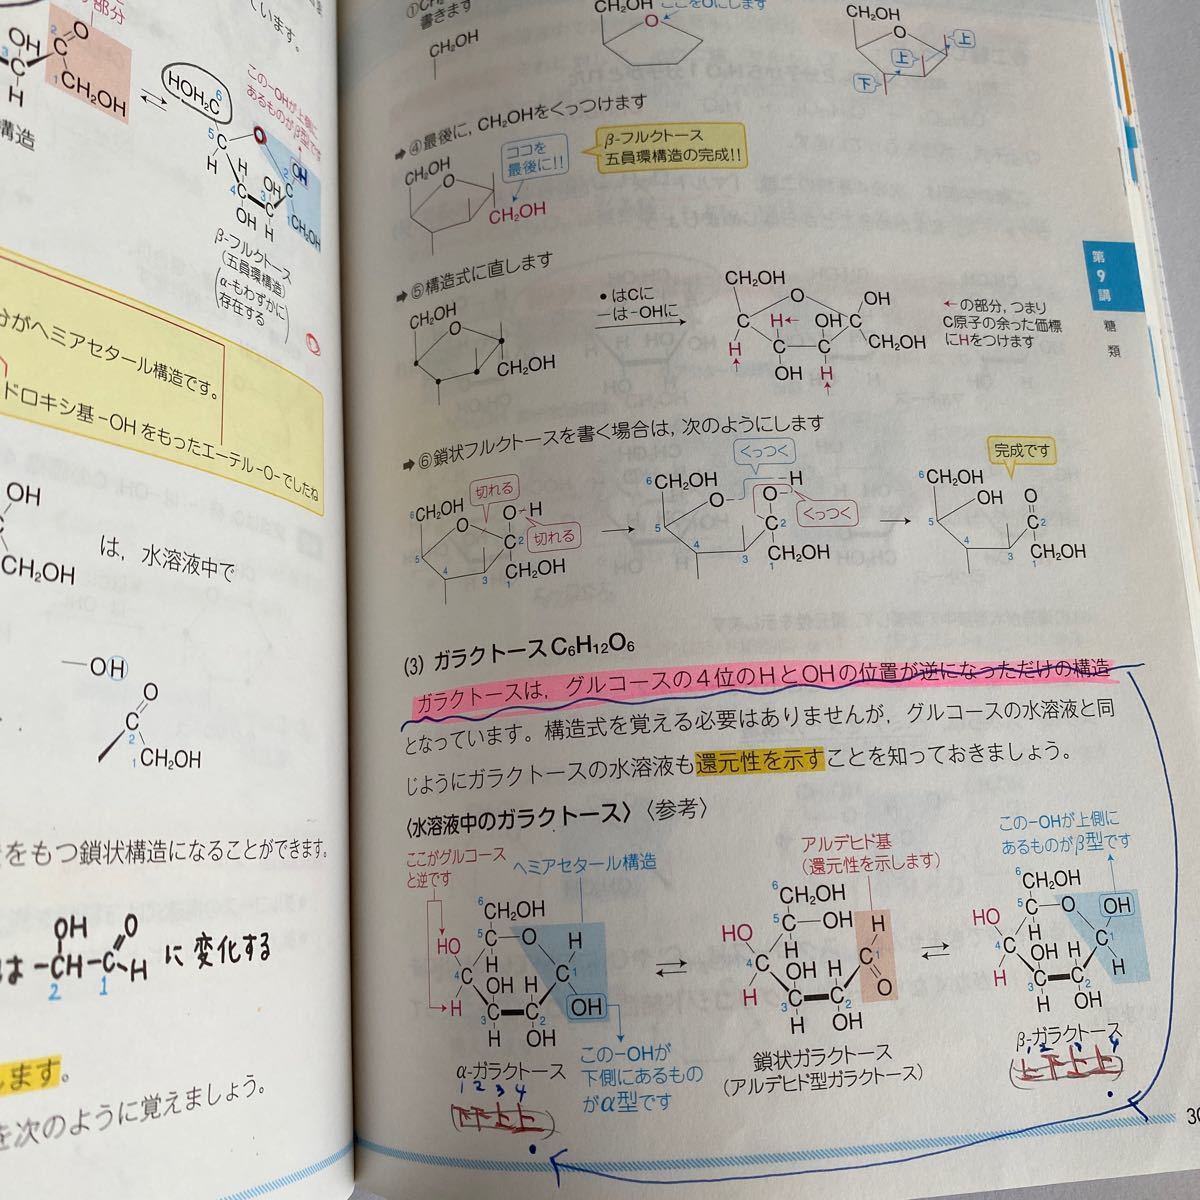 ています。
HOH₂C
このーOHが上側に
あるものがβ型です
CH₂OH
構造
β-フルクトース
(五員環構造)
(α-もわずかに
存在する)
がヘミアセタール構造です。
ドロキシ基−OHをもったエーテル-O-でしたね
OH
CH₂OH
は，水溶液中で
—OH
O
CH₂OH
をもつ鎖状構造になることができます。
OH O
−CH−C−H に変化する
2 1
します。
を次のように覚えましょう。
書きます
CH₂OH
CH₂OH
ここをOにします
CH₂OH
上
上
下
➡④最後に，CH₂OHをくっつけます
CH₂OH
ココを
最後に!!
CH₂OH
β-フルクトース
五員環構造の完成!!
➡⑤構造式に直します
CH₂OH
O
CH₂OH
•はCに
—は-OHに
CH₂OH
O
OH
C
H←
OH
C
H
C
C
CH₂OH
OH
H
←の部分，つまり
C原子の余った価標
にHをつけます
第9講
糖類
➡⑥鎖状フルクトースを書く場合は，次のようにします
CH₂OH
切れる
O-H
切れる
CH₂OH
CH₂OH
くっつく
O-H
くっつく
CH₂OH
完成です
CH₂OH
OH
O
C
CH₂OH
(3) ガラクトースC₆H₁₂O₆
ガラクトースは，グルコースの4位のHとOHの位置が逆になっただけの構造
となっています。構造式を覚える必要はありませんが，グルコースの水溶液と同
じようにガラクトースの水溶液も還元性を示すことを知っておきましょう。
〈水溶液中のガラクトース〉〈参考〉
ここがグルコース
と逆です
ヘミアセタール構造
アルデヒド基
(還元性を示します)
この-OHが上側に
あるものがβ型です
CH₂OH
HO
OH
CH₂OH
HO
OH
CH₂OH
HO
OH
α-ガラクトース
この-OHが
下側にあるもの
がα型です
鎖状ガラクトース
(アルデヒド型ガラクトース)
β-ガラクトース
1 2 3 4
下下上上
1 2 3 4
上下上上